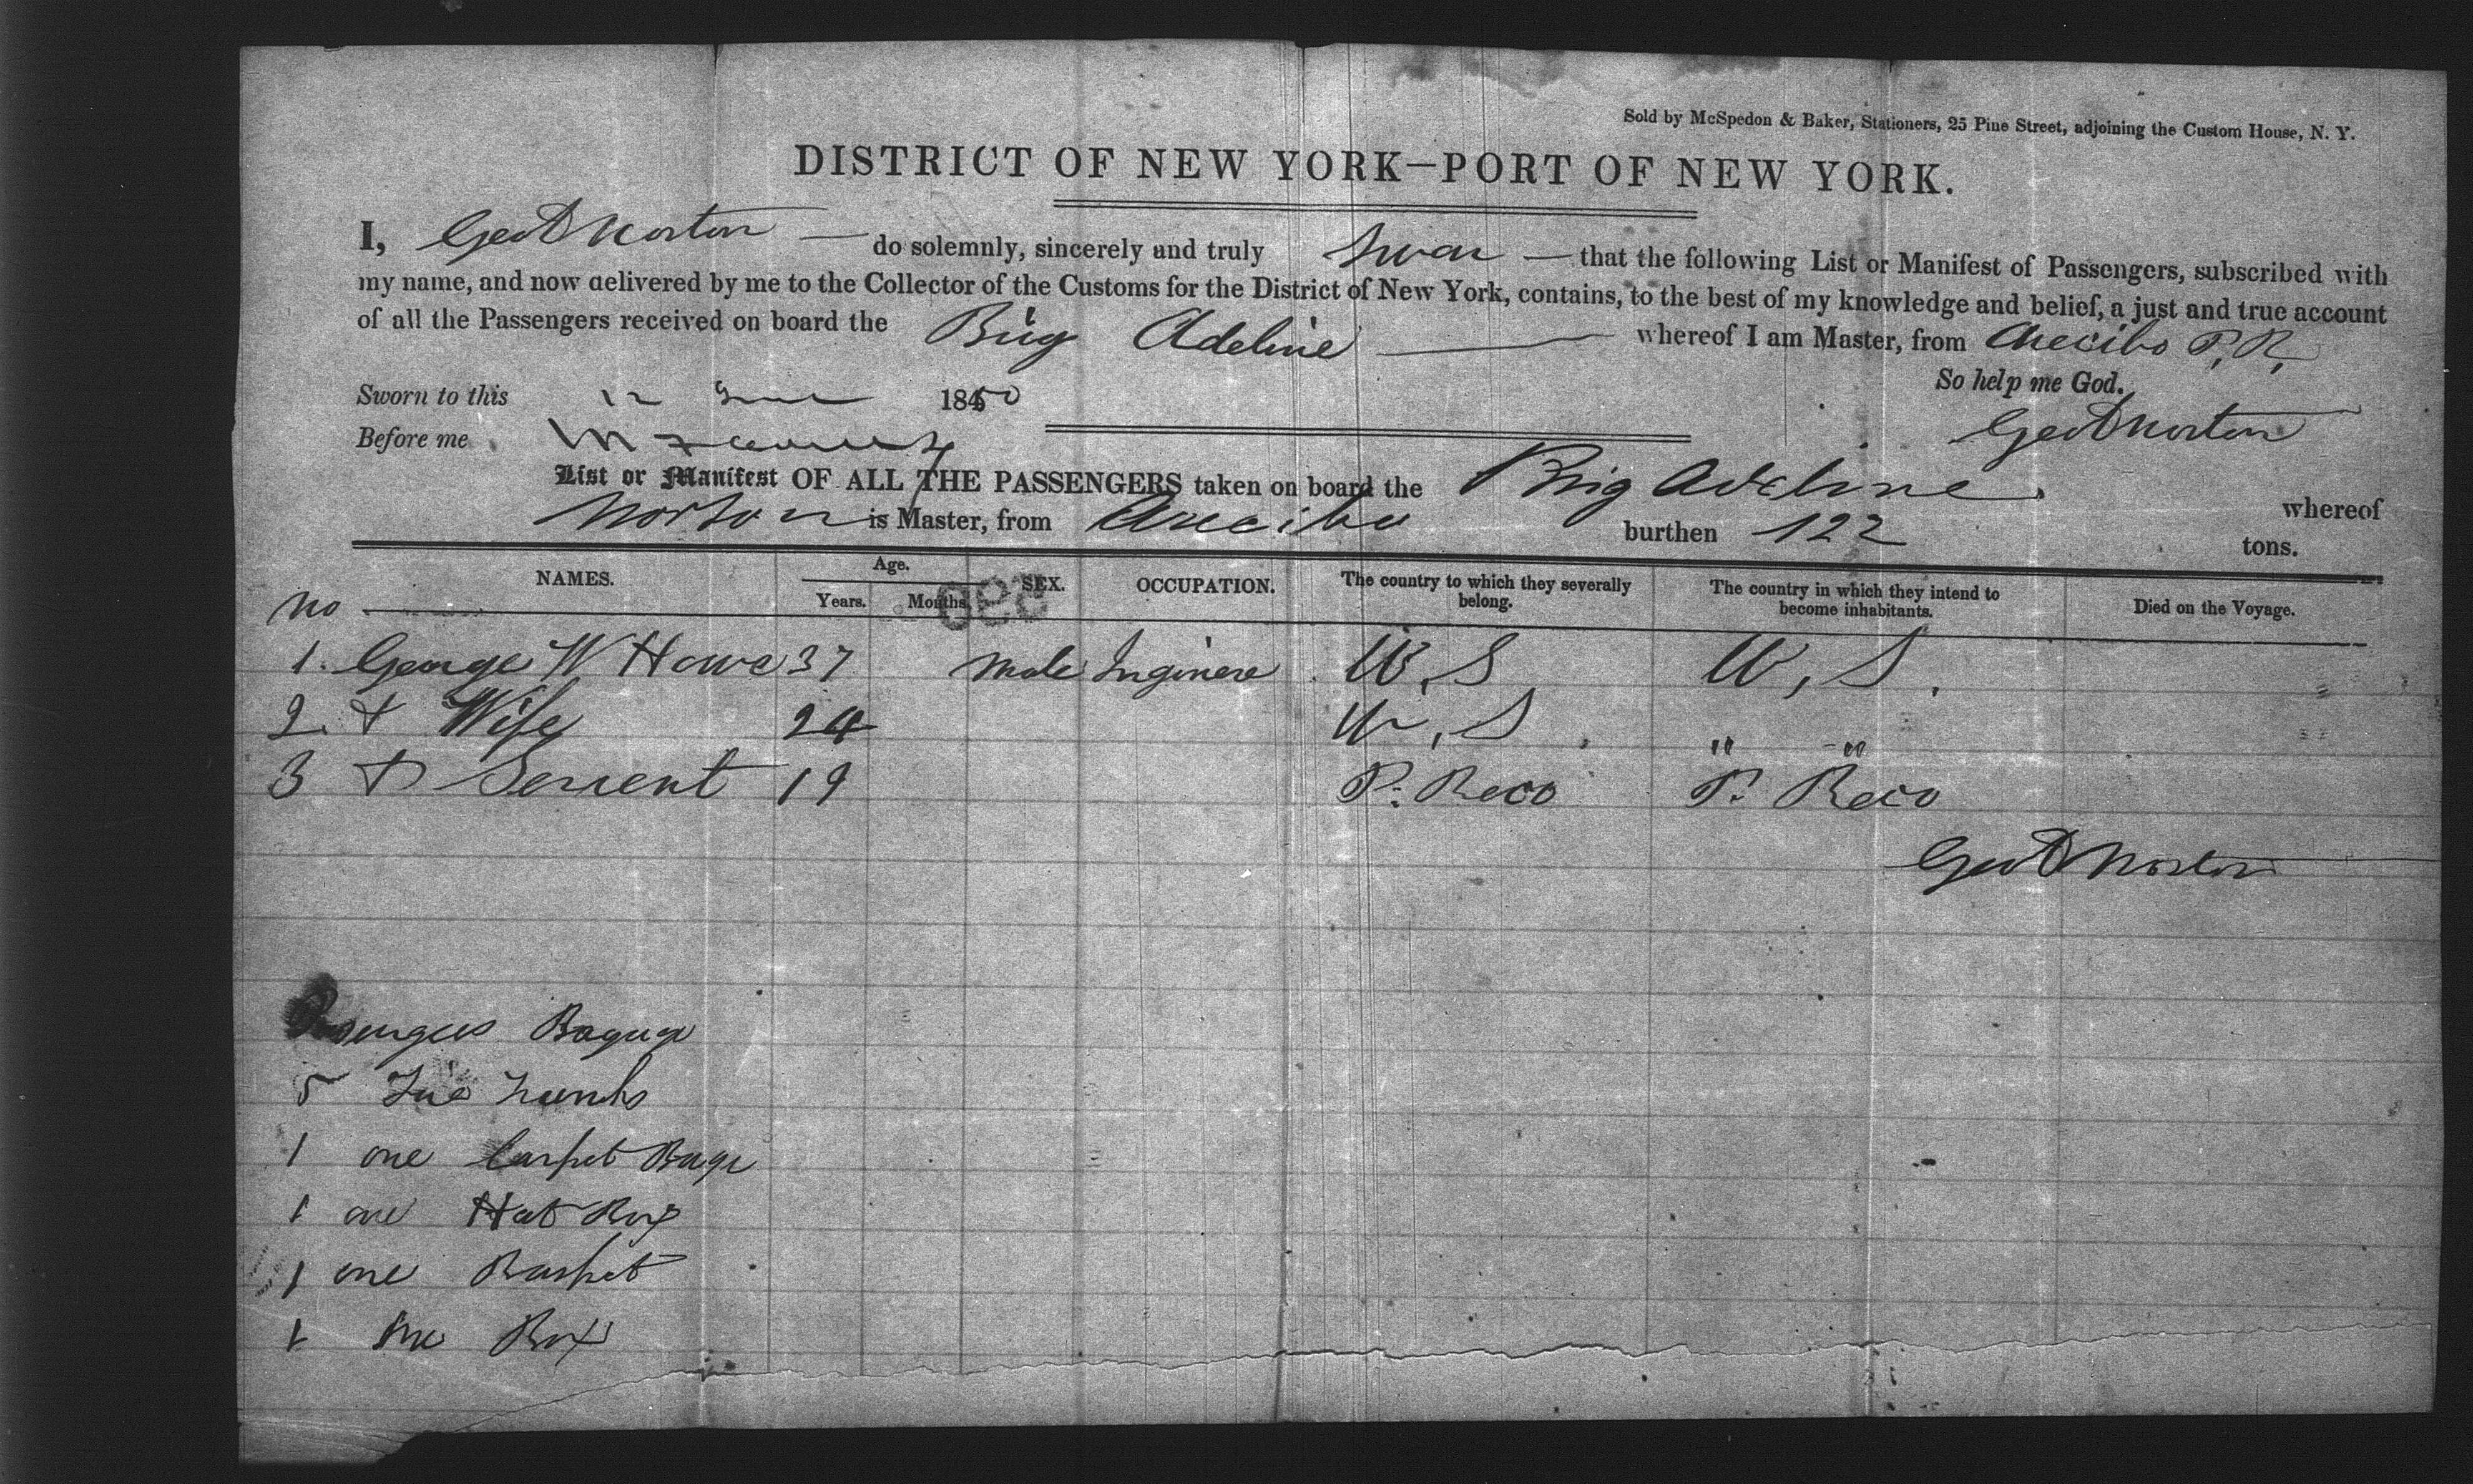 Sold by McSpedon & Baker, Stationers, 25 Pine Street, adjoining the Custom House, N. Y.
DISTRICT OF NEW YORK—PORT OF NEW YORK.
I, Geo D Norton — do solemnly, sincerely and truly Swear — that the following List or Manifest of Passengers, subscribed with
my name, and now delivered by me to the Collector of the Customs for the District of New York, contains, to the best of my knowledge and belief, a just and true account
of all the Passengers received on board the Brig Adeline — whereof I am Master, from Arecibo P. R.
So help me God.
Sworn to this 12 June 1850
Before me
Geo D Norton
List or Manifest OF ALL THE PASSENGERS taken on board the Brig Adeline whereof
Norton is Master, from Arecibo burthen 122 tons.
no NAMES. Age. Years. Months. SEX. OCCUPATION. The country to which they severally belong. The country in which they intend to become inhabitants. Died on the Voyage.
590
1. George W Howe 37 Male Inginere U. S U, S.
2. + Wife 24 U, S " "
3 + Servent 19 P. Reco P. Reco
Geo D Norton
Bagage
5 Trunks
1 one Carpet Bage
1 one Hat Box
1 one Basket
1 one Box